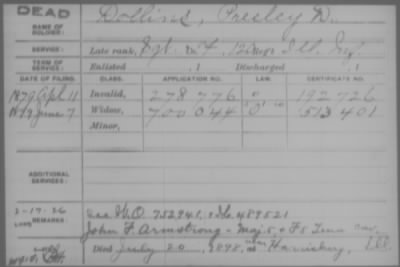 DEAD
NAME OF SOLDIER: Dollins, Presley D.
SERVICE: Late rank, Sgt. Ill. Inf.
TERM OF SERVICE: Enlisted , 1 Discharged , 1
DATE OF FILING. CLASS. APPLICATION NO. LAW. CERTIFICATE NO.
1879 Apl 11 Invalid, 278 776 " 192 726
June 7 Widow, 700 044 "O" 513 401
Minor,
ADDITIONAL SERVICES:
2-17-26
REMARKS: see W.O. 752,941, 489521
John F. Armstrong - Maj 5 & F 5 Tenn
Died July 20, 1898, near Harrisburg, Ill.